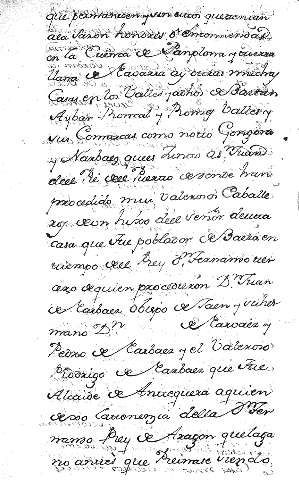 que permanecen y son
a la Varon honores
en la Cuenca de Pamplona y tierra
llana de Navarra ay otras muchas
Casas en los Valles de Baztan
Aybar Roncal y Valles y
sus Comarcas como notio Gongora
y Narbaez
del Rei del Puerto de donde han
procedido mui valerosos Caballe
ros de un hixo del señor de una
casa que fue poblador de Baeza en
tiempo del Rey Dn Fernando ter
zero de quien procedieron Dn Juan
de Narbaez obispo de Jaen y su her
mano Dn de Narvaez y
Pedro de Narbaez y el Valeroso
Rodrigo de Narbaez que fue
Alcaide de Antequera a quien
dexo la tenenzia della Dn Fer
nando Rey de Aragon que la ga
no antes que Reinase viendo